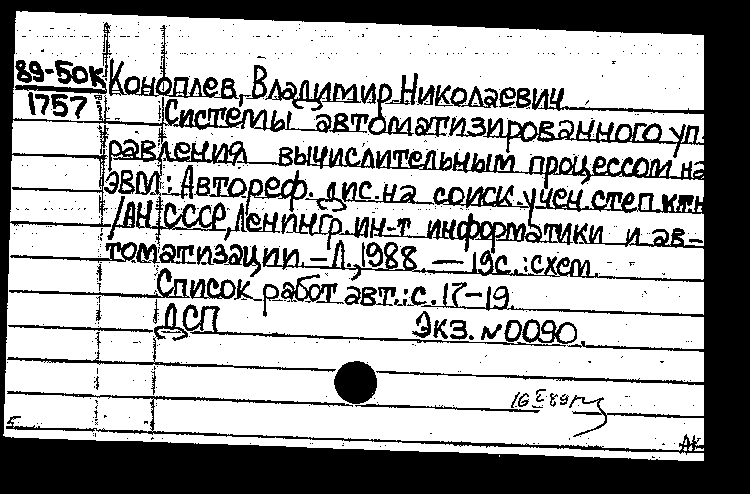 89-50К
1757
Коноплев, Владимир Николаевич
Системы автоматизированного уп-
равления вычислительным процессом на
ЭВМ: Автореф. дис. на соиск. учен. степ. ктн
/АН СССР, Ленингр. ин-т информатики и ав-
томатизации. – Л., 1988. — 19с.: схем.
Список работ авт.: с. 17–19.
ДСП Экз. №0090.
АК